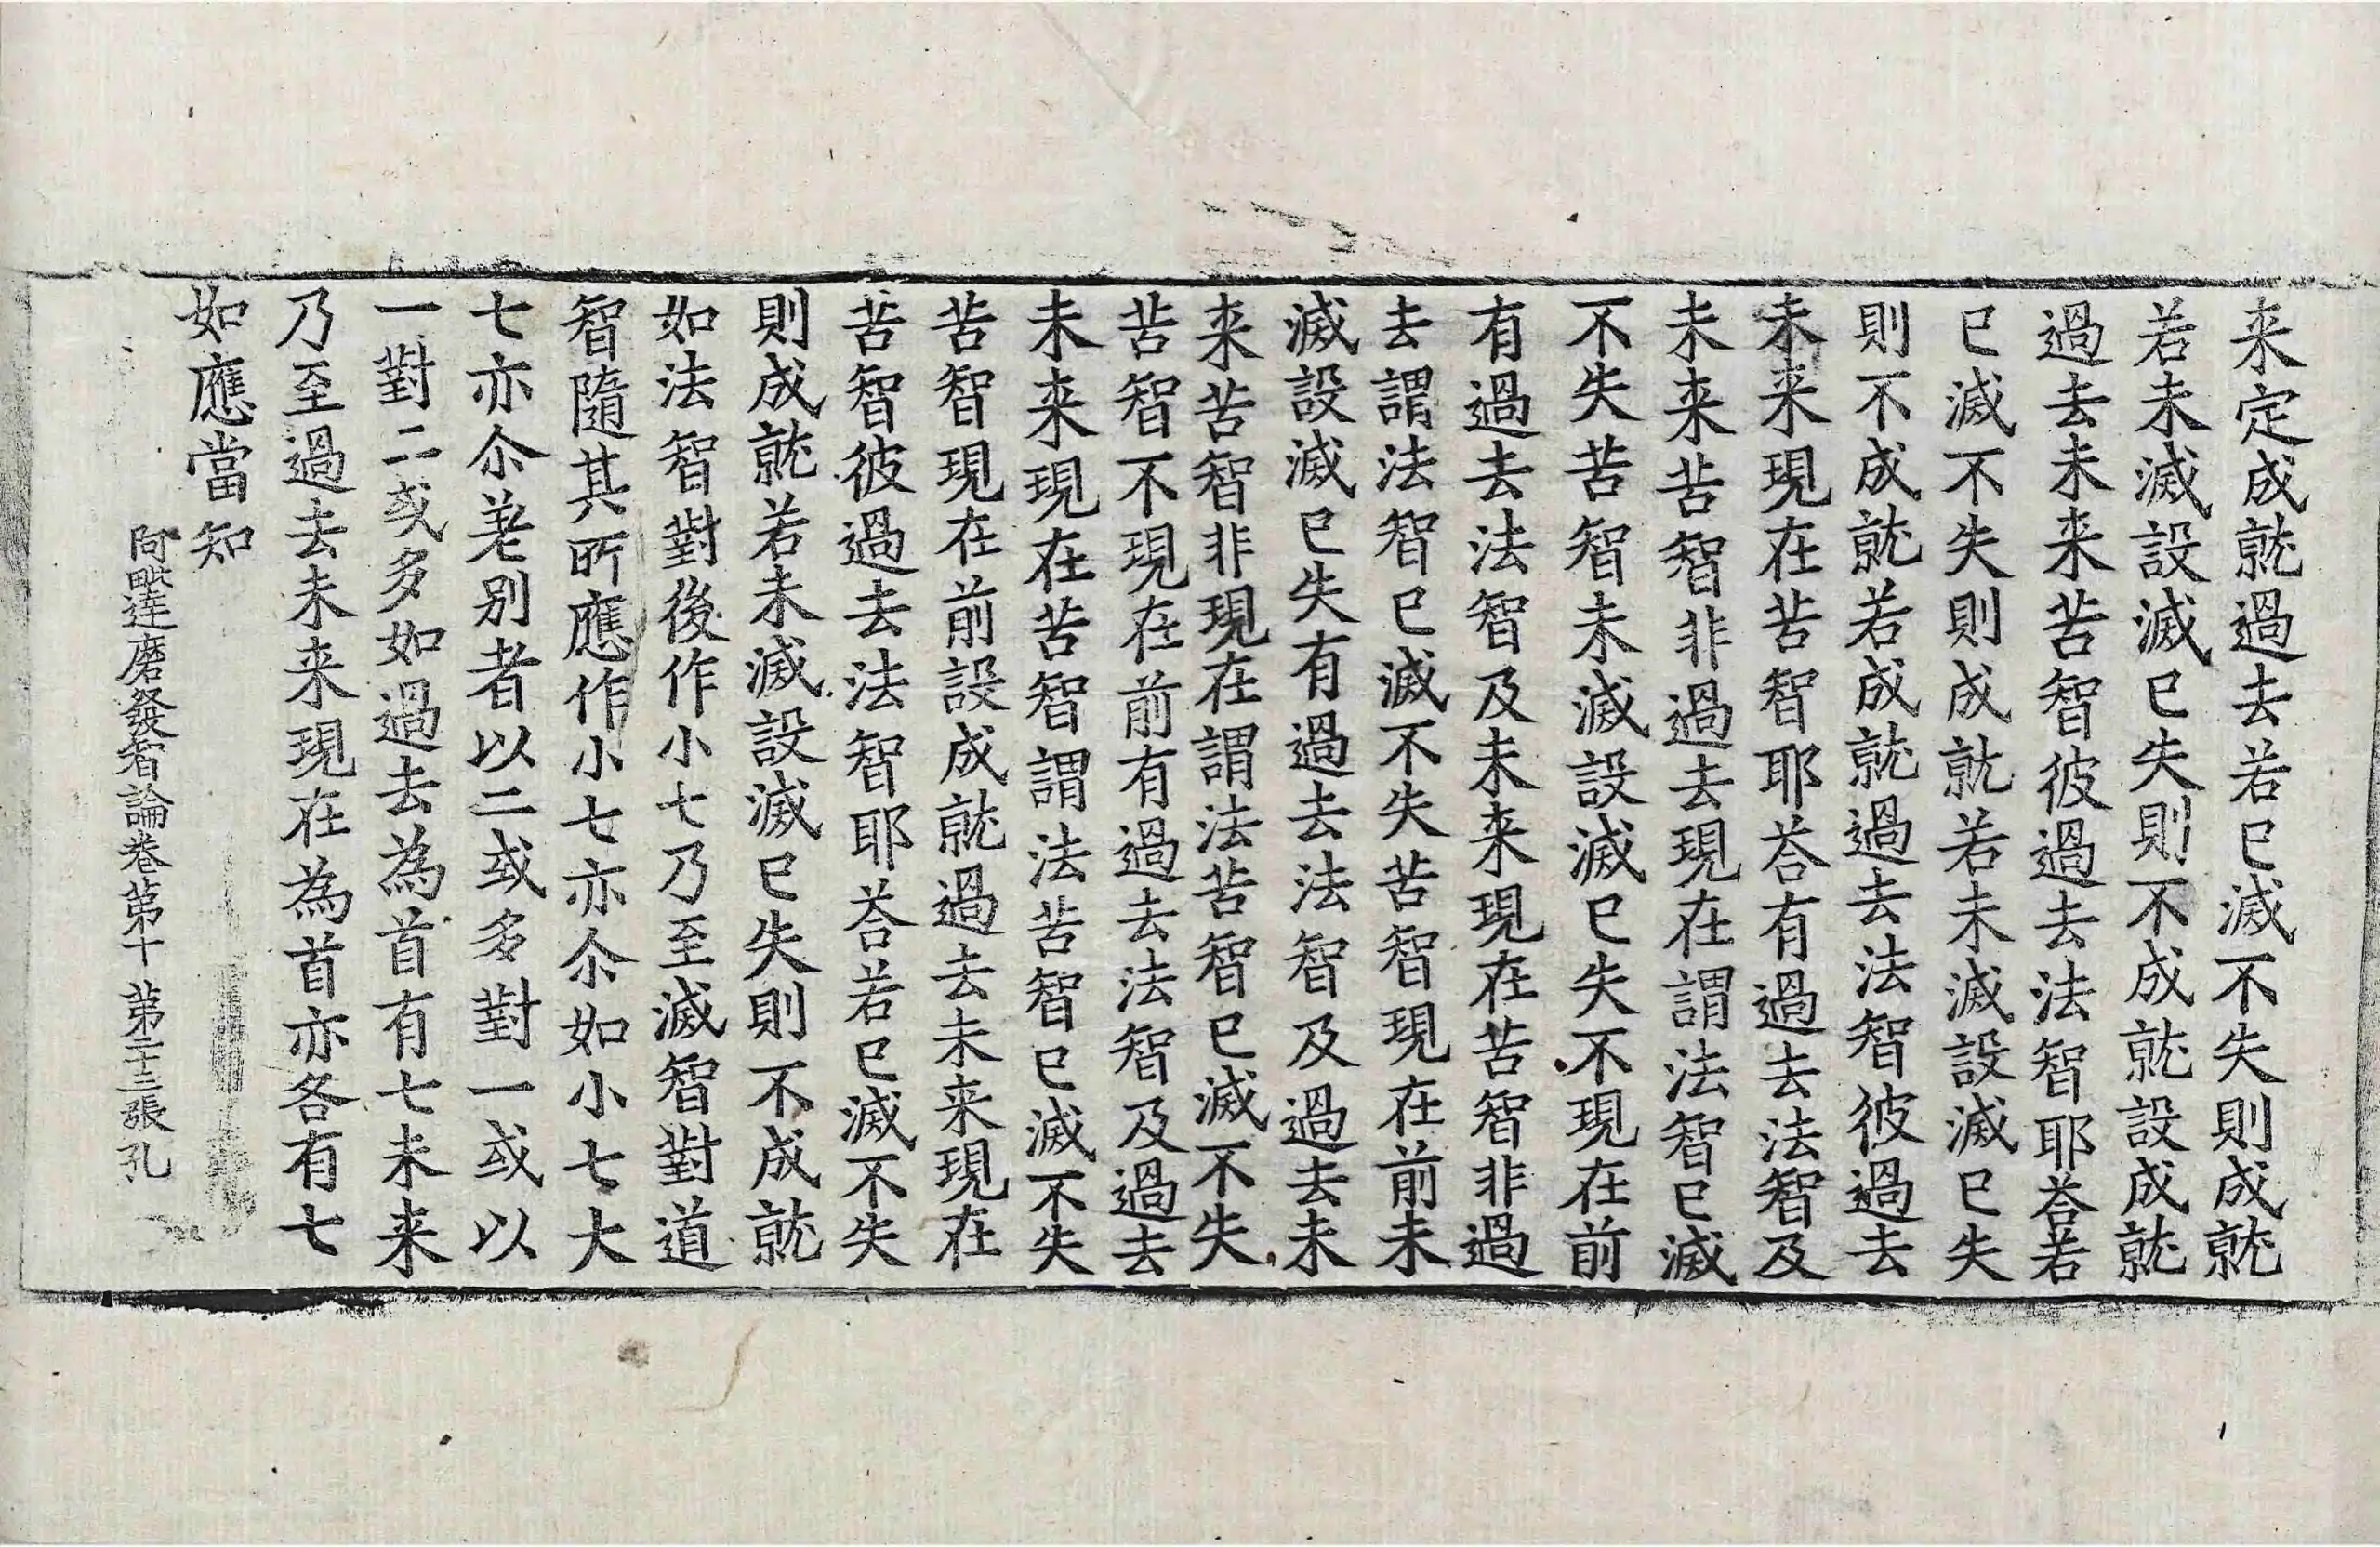 来定成就過去若已滅不失則成就
若未滅設滅已失則不成就設成就
過去未来苦智彼過去法智耶荅若
已滅不失則成就若未滅設滅已失
則不成就若成就過去法智彼過去
未来現在苦智耶荅有過去法智及
未来苦智非過去現在謂法智已滅
不失苦智未滅設滅已失不現在前
有過去法智及未来現在苦智非過
去謂法智已滅不失苦智現在前未
滅設滅已失有過去法智及過去未
来苦智非現在謂法苦智已滅不失
苦智不現在前有過去法智及過去
未来現在苦智謂法苦智已滅不失
苦智現在前設成就過去未来現在
苦智彼過去法智耶荅若已滅不失
則成就若未滅設滅已失則不成就
如法智對後作小七乃至滅智對道
智隨其所應作小七亦尒如小七大
七亦尒差别者以二或多對一或以
一對二或多如過去為首有七未来
乃至過去未来現在為首亦各有七
如應當知
阿毗達磨發智論卷第十 第二十三張 孔